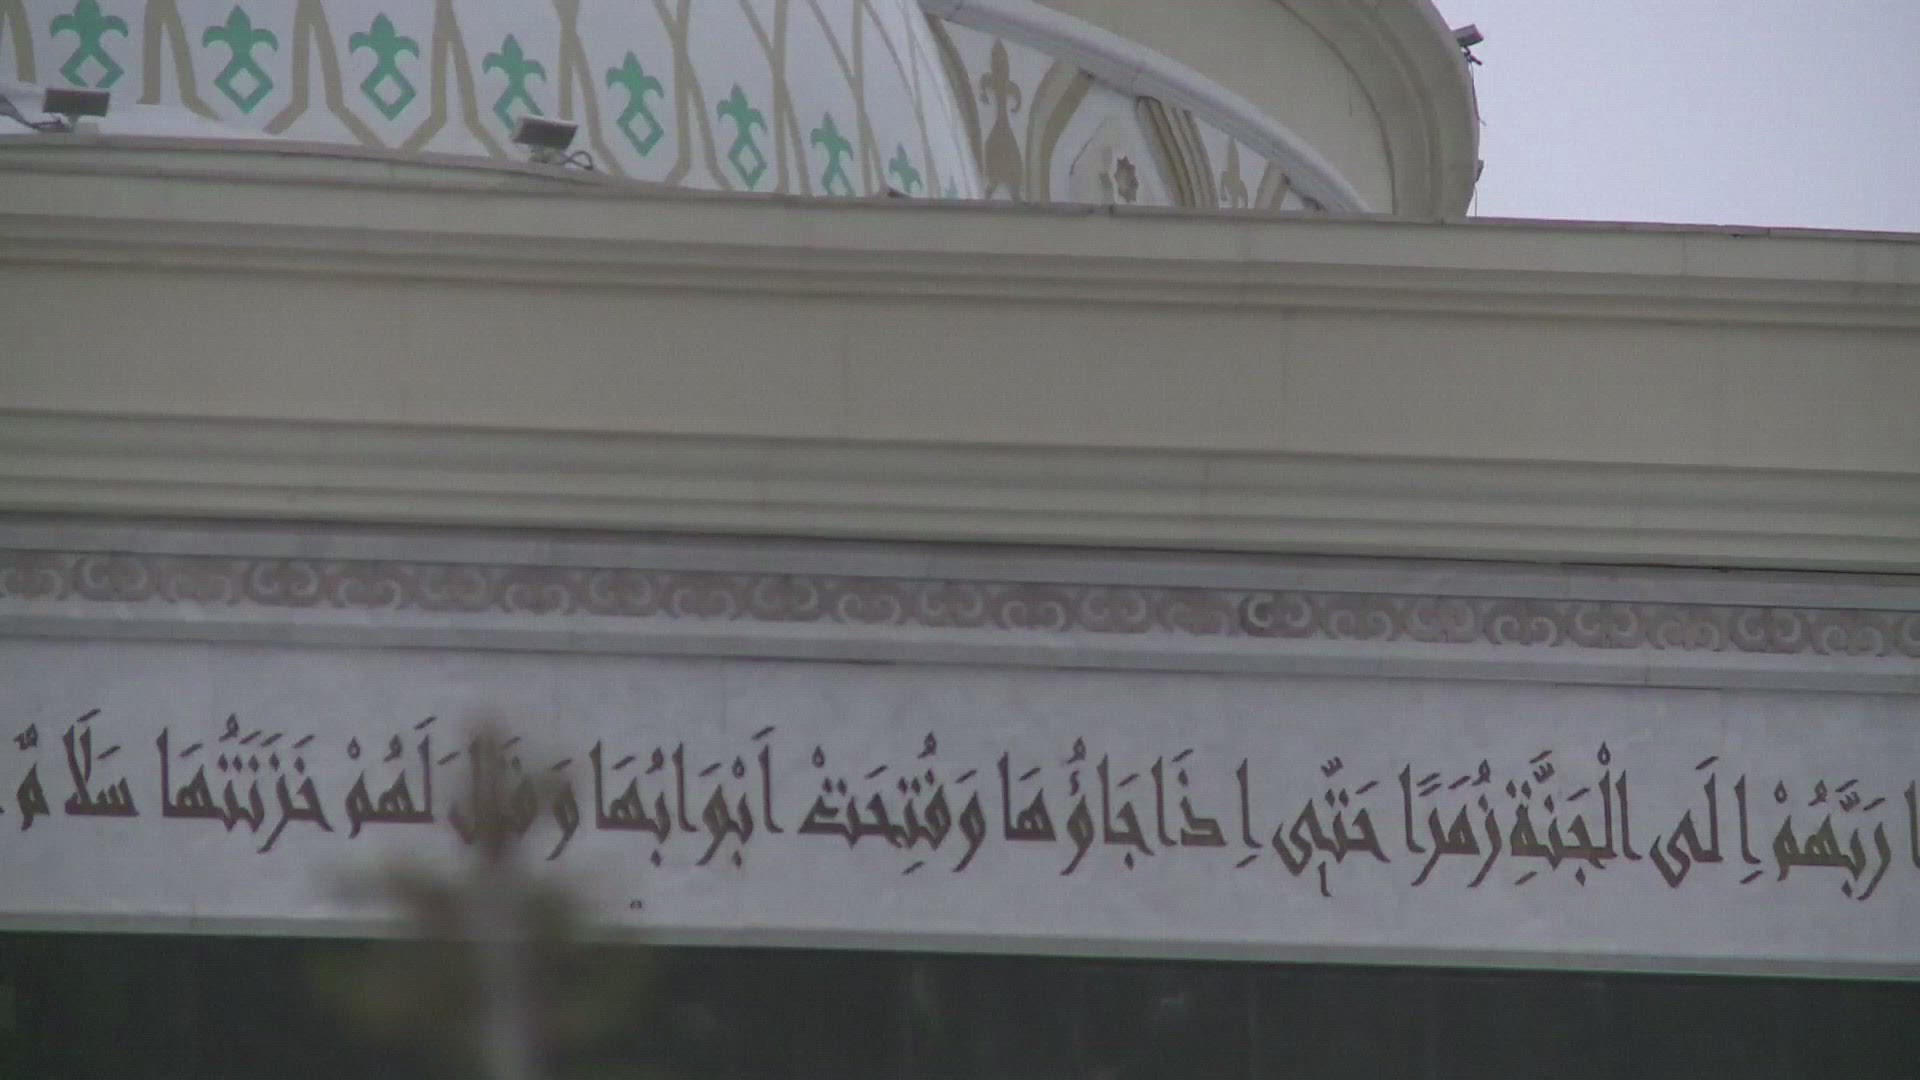 رَبَّهُمْ اِلَى الْجَنَّةِ زُمَرًا حَتّٰى اِذَا جَاؤُهَا وَفُتِحَتْ اَبْوَابُهَا وَقَالَ لَهُمْ خَزَنَتُهَا سَلَامٌ